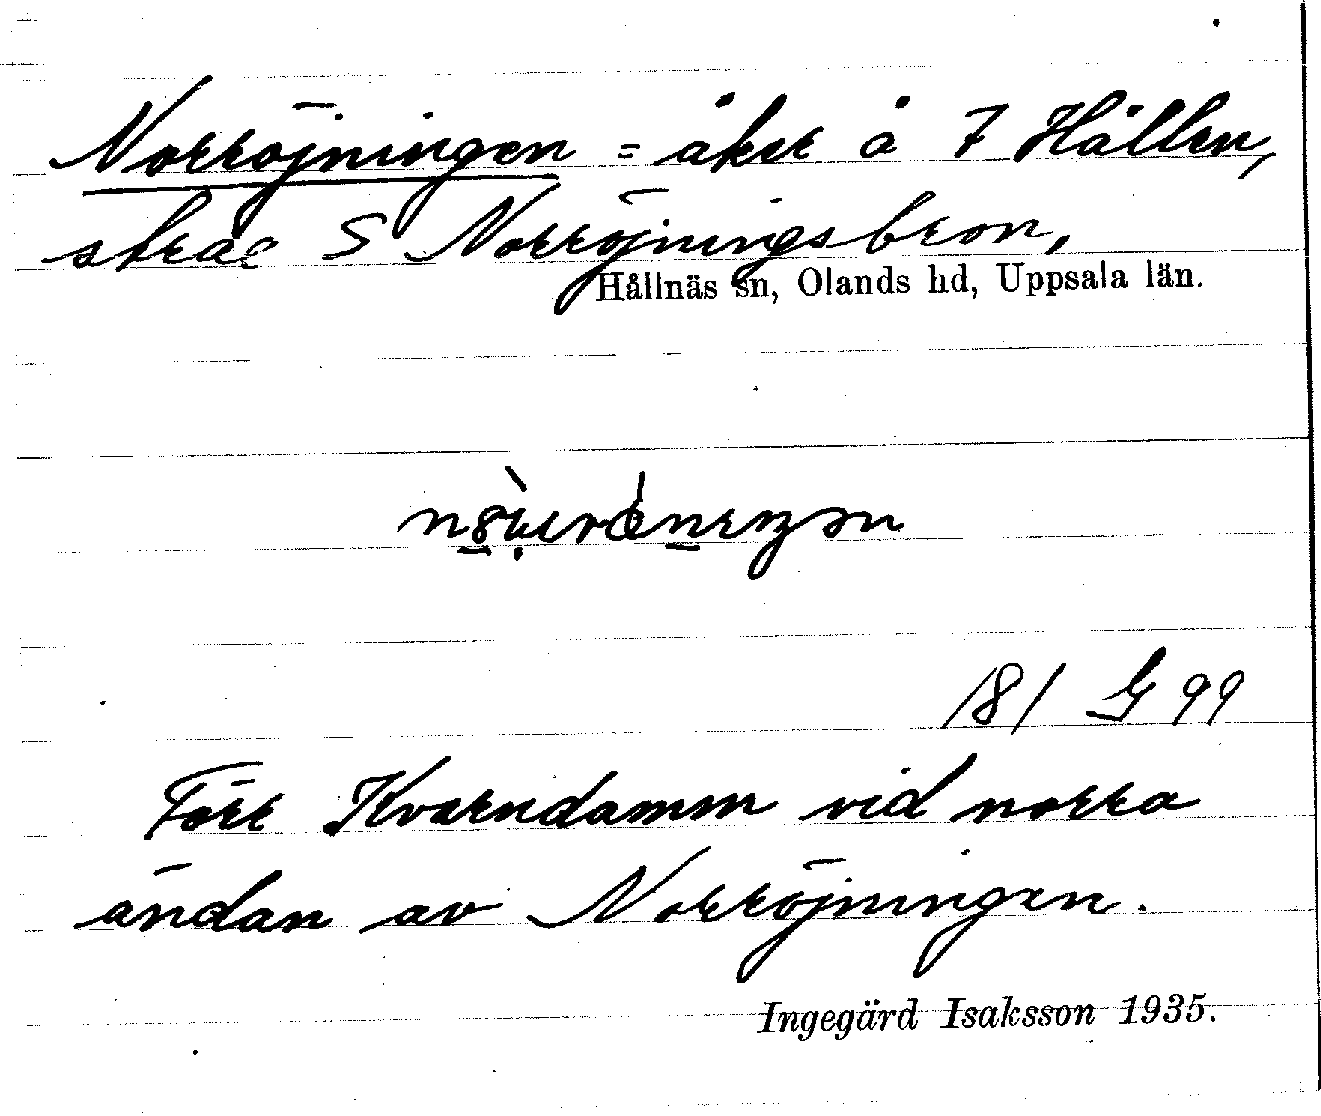 Norröjningen = åker å 7 Hållen,
strax S Norröjningsbron,
Hållnäs sn, Olands hd, Uppsala län.
181 G 99
Förr Kvarndamm vid norra
ändan av Norröjningen.
Ingegärd Isaksson 1935.